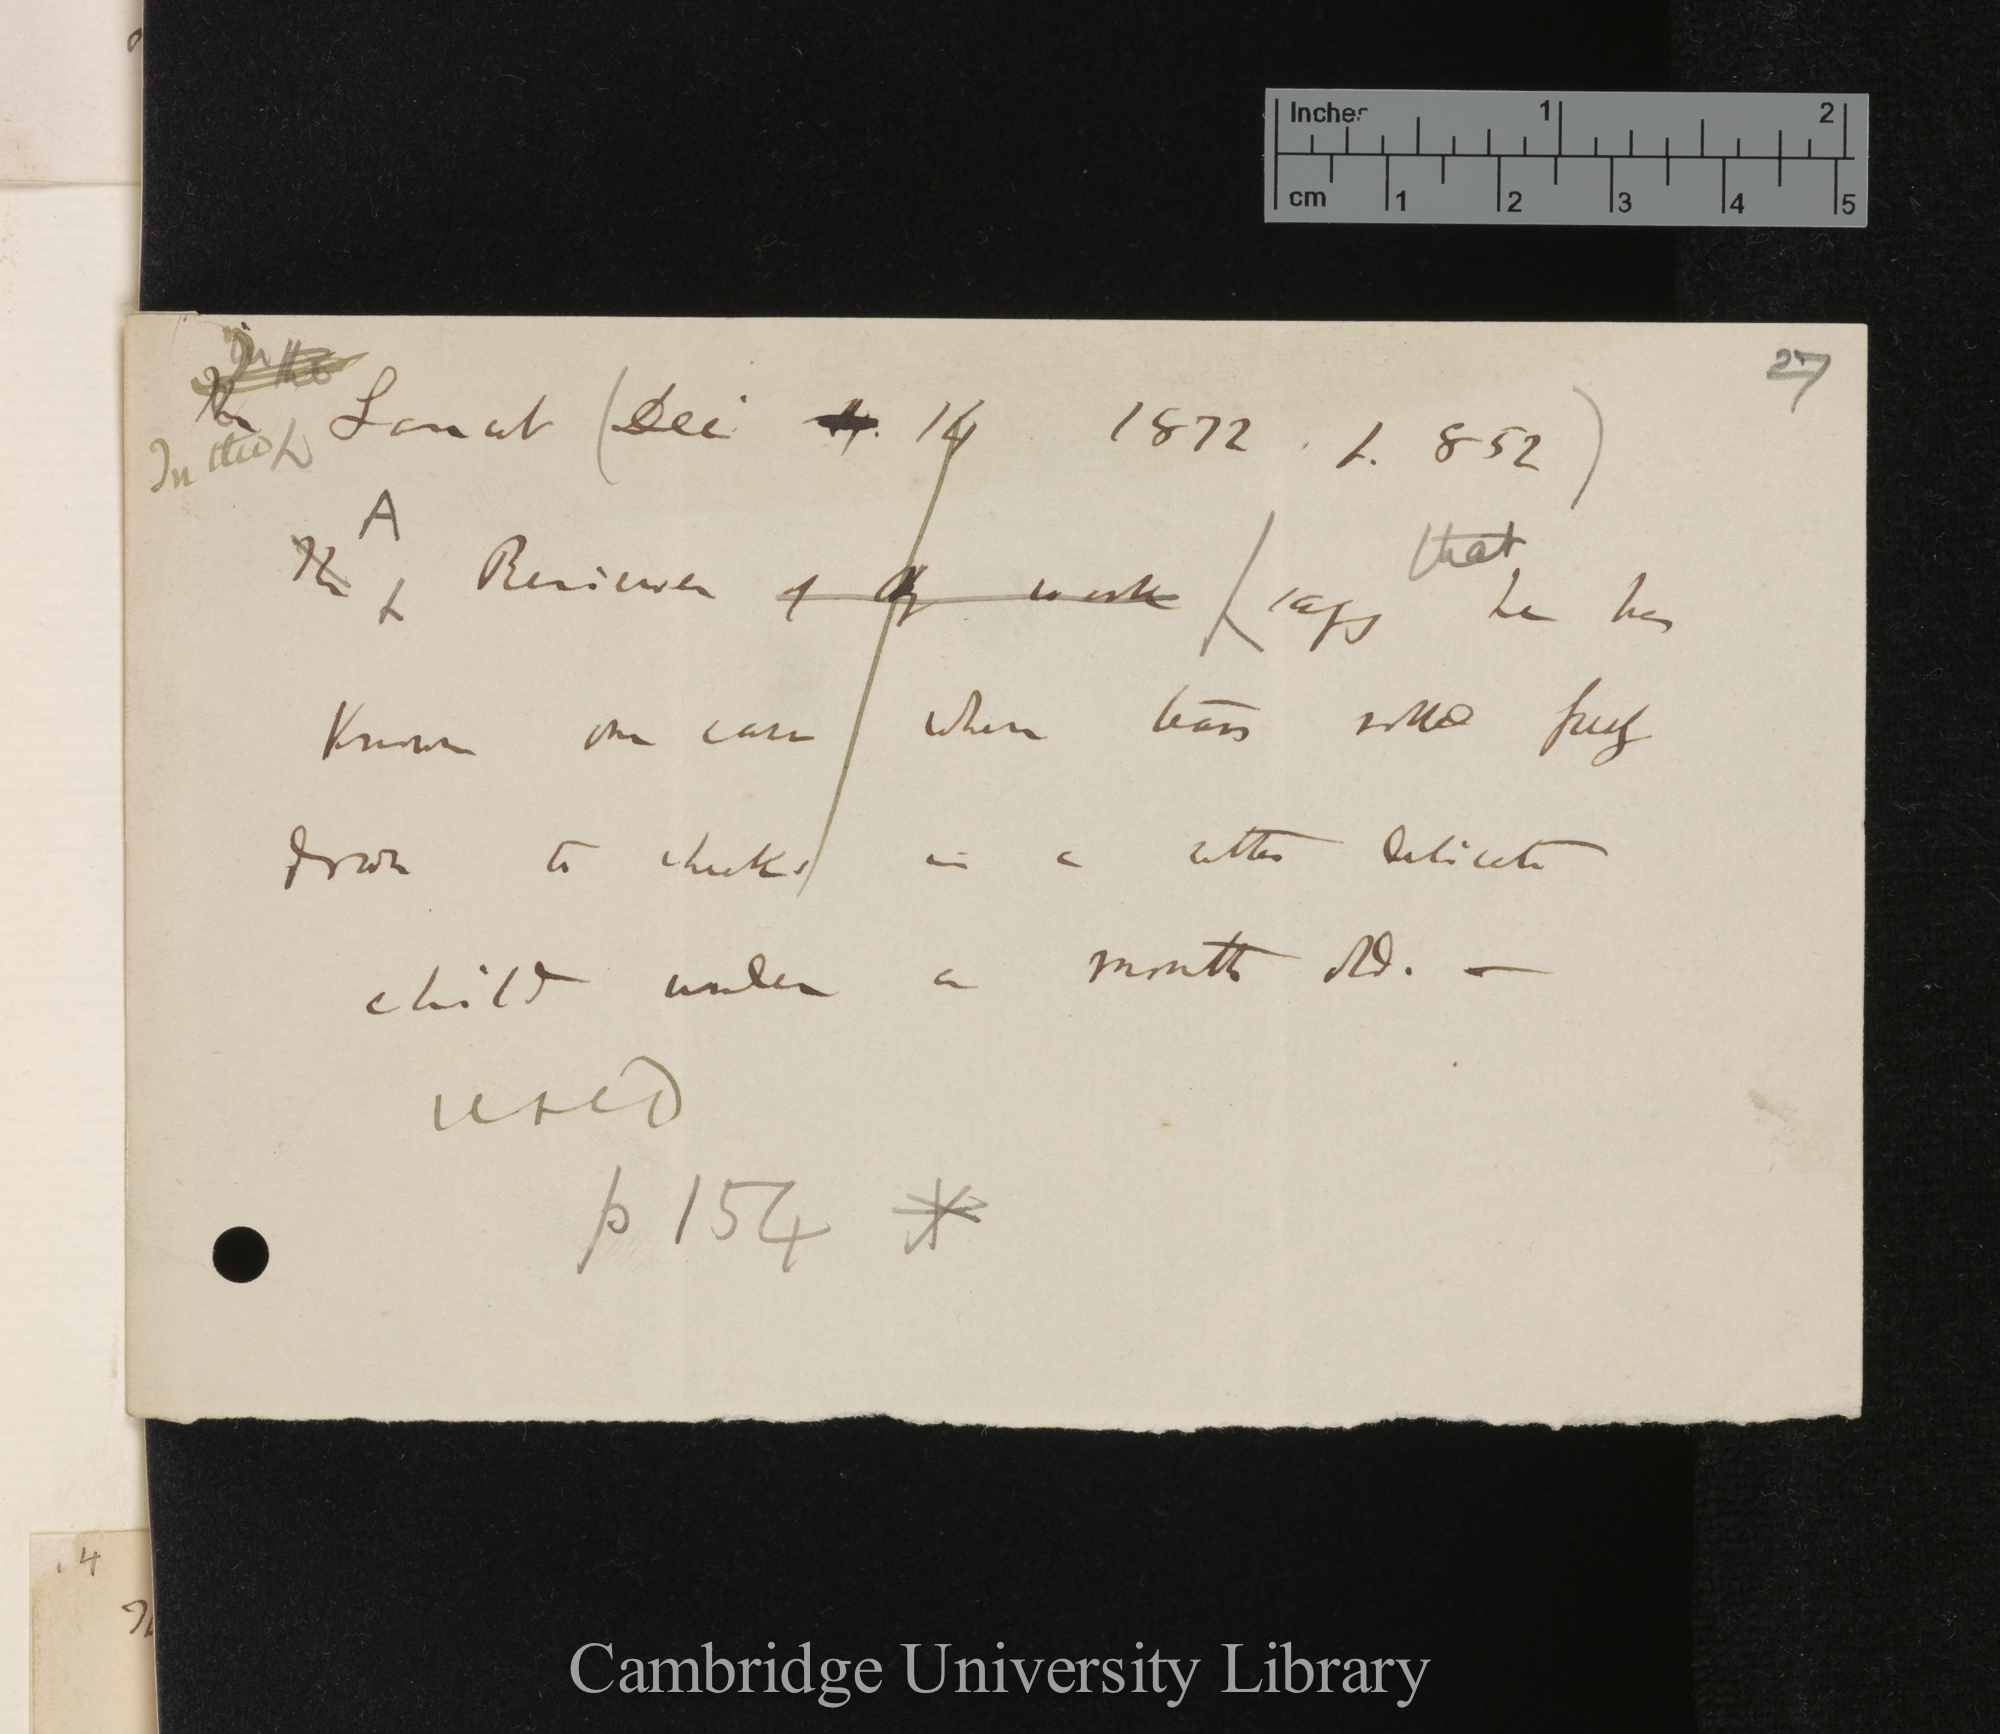 Inches 1 2
cm 1 2 3 4 5
27
In the
The Lancet (Dec 14. 1872. p. 852)
In the
A that
The Reviewer of my work / says he has
known one case when tears rolled freely
down to cheeks in a rather delicate
child under a month old. —
used
p 154 *
.4
Cambridge University Library